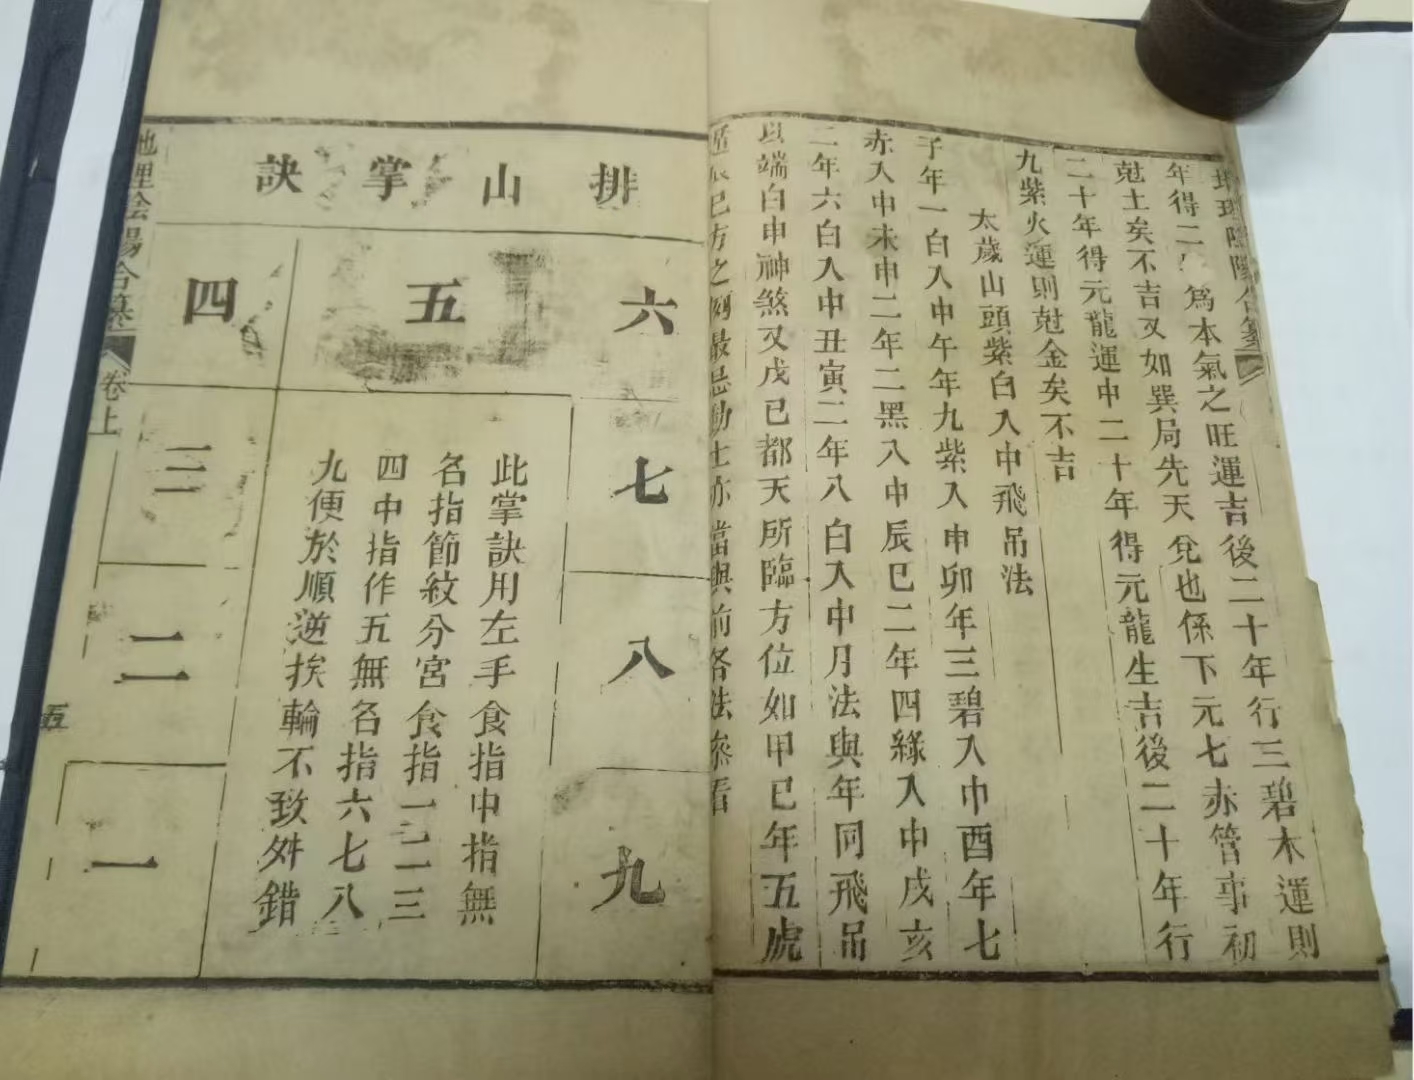 年得二 為本氣之旺運吉後二十年行三碧木運則
尅土矣不吉又如巽局先天兌也係下元七赤管事初
二十年得元龍運中二十年得元龍生吉後二十年行
九紫火運則尅金矣不吉
太歲山頭紫白入中飛吊法
子年一白入中午年九紫入中卯年三碧入中酉年七
赤入中未申二年二黑入中辰巳二年四綠入中戌亥
二年六白入中丑寅二年八白入中月法與年同飛吊
以端白中神煞又戊己都天所臨方位如甲己年五虎
辰巳方之 最忌動土亦當與前各法叅看
排山掌訣
六
五
四
七
三
八
二
九
一
此掌訣用左手食指中指無
名指節紋分宮食指一二三
四中指作五無名指六七八
九便於順逆挨輪不致舛錯
地理陰陽合纂
卷上
五